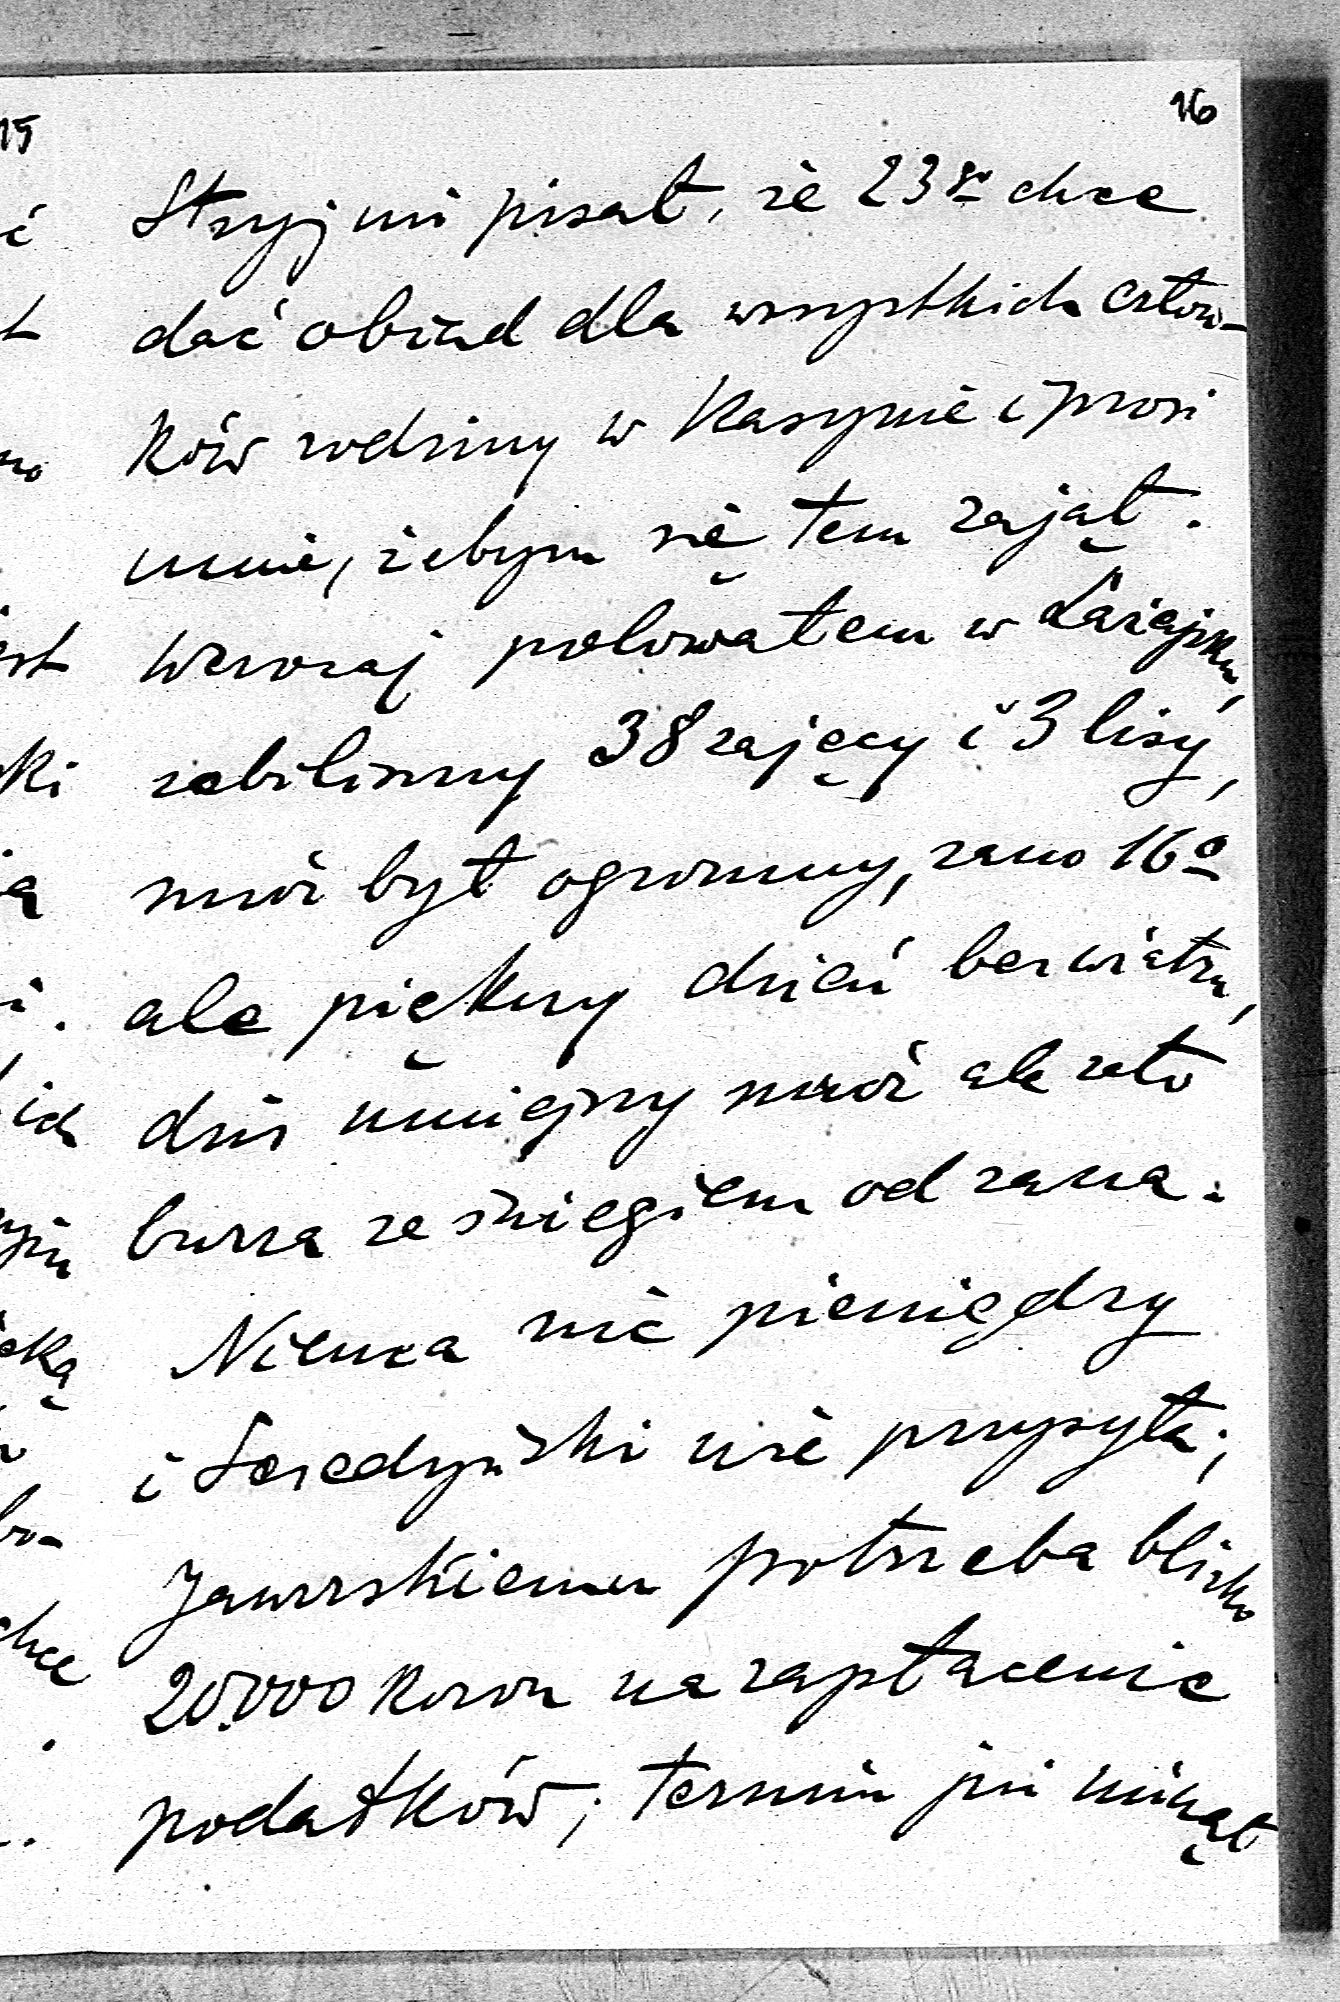 16
15
Stryj mi pisał, że 23go chce
dać obiad dla wszystkich człon-
ków rodziny w Kasynie i prosi
mnie, żebym się tem zajął.
Wczoraj polowałem w Leżajsku,
zabiliśmy 38 zajęcy i 3 lisy,
mróz był ogromny, rano 16°
ale piękny dzień bez wiatru,
dziś mniejszy mróz ale zato
burza ze śniegiem od rana.
Niema nic pieniędzy
i nie przysyła;
Jaworskiemu potrzeba blisko
20.000 koron na zapłacenie
podatków; termin już minął